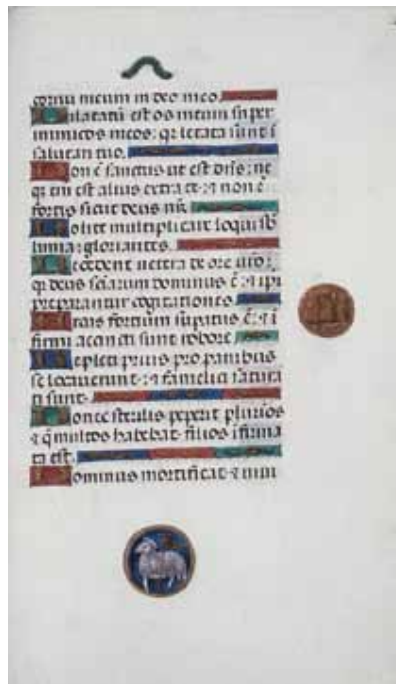 cornu meum in deo meo.
Dilatatū est os meum sup̄er
inimicos meos: q̄r letata sum ī
salutari tuo.
Non ē sanctus ut est dn̄s: ne
q̄ eni est alius extra te: ⁊ non ē
fortis sicut deus nr̄.
Nolite multiplicare loqui sb
limia: gloriantes.
Recedent uetera de ore uro:
q̄r deus sciarum dominus ē: ⁊ ipi
preparantur cogitationes.
Arcus fortium supatus ē: ⁊ ī
firmi accincti sunt robore.
Repleti prius pro panibus
se locauerunt: ⁊ famelici satura
ti sunt.
Donec sterilis peperit plurīos
⁊ q̄ multos habebat filios ifirma
ta est.
Dominus mortificat ⁊ uiui